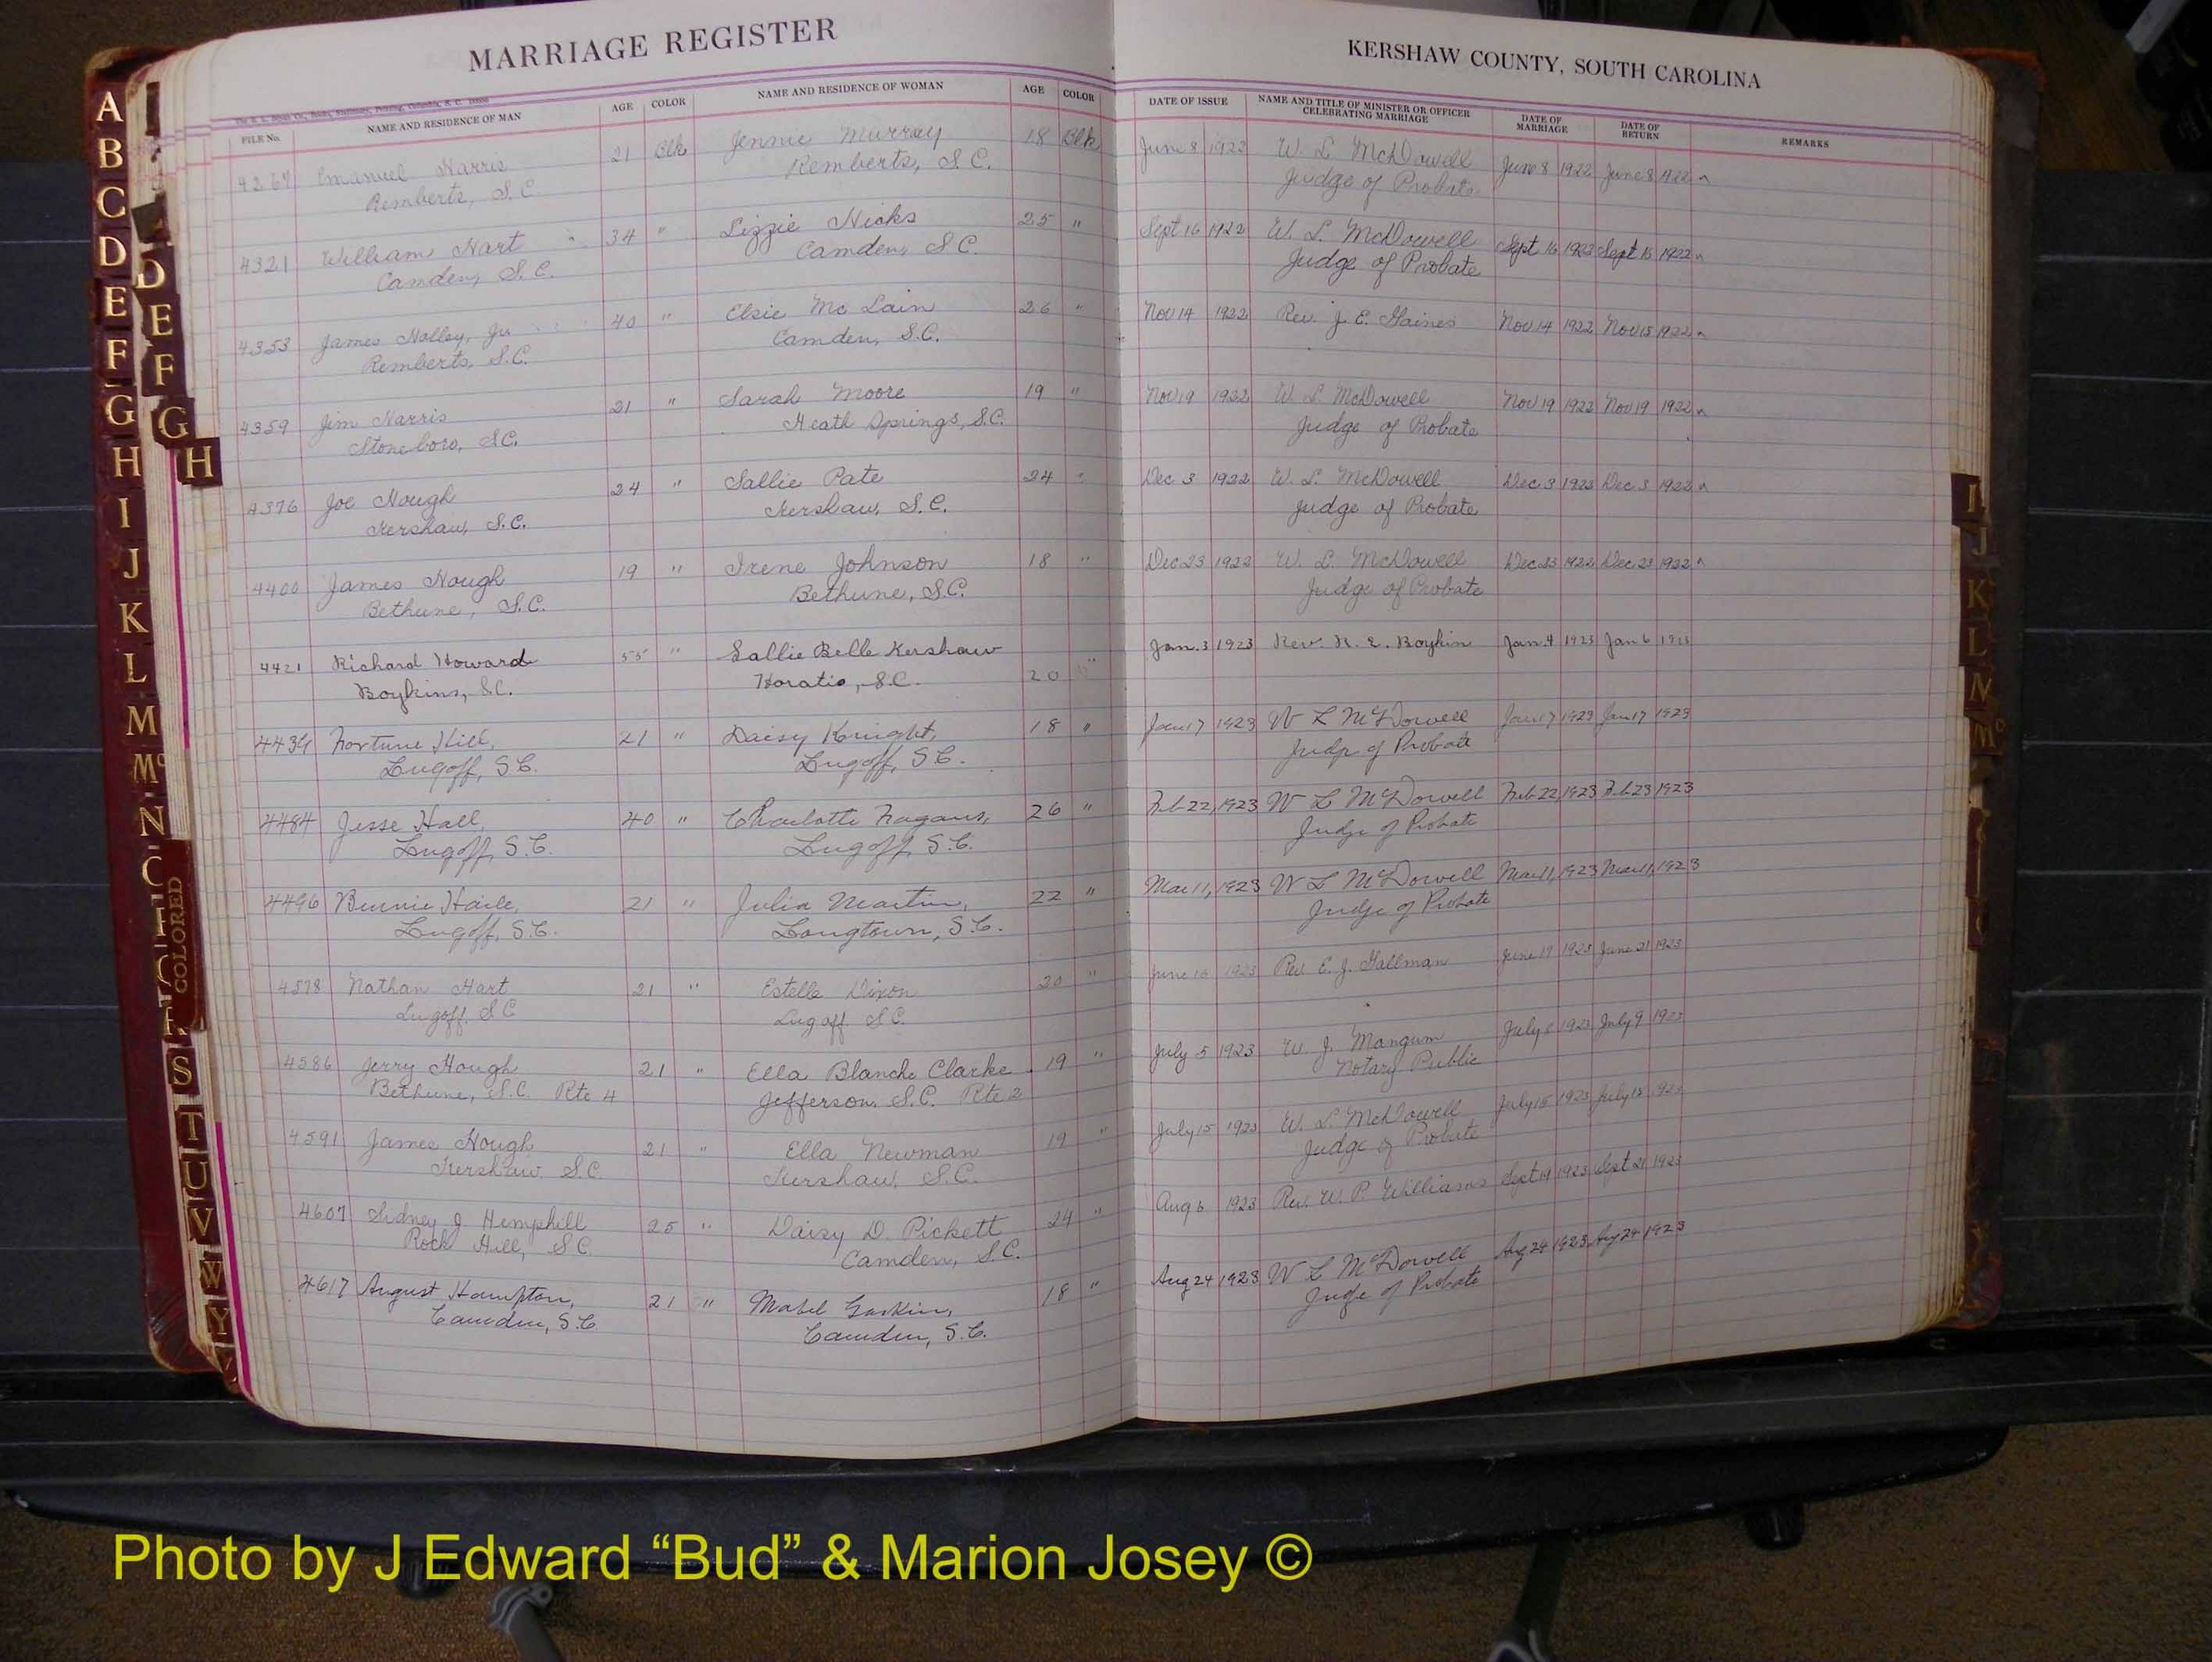 MARRIAGE REGISTER
KERSHAW COUNTY, SOUTH CAROLINA
FILE No. NAME AND RESIDENCE OF MAN AGE COLOR NAME AND RESIDENCE OF WOMAN AGE COLOR DATE OF ISSUE NAME AND TITLE OF MINISTER OR OFFICER CELEBRATING MARRIAGE DATE OF MARRIAGE DATE OF RETURN REMARKS
4267 Emanuel Harris 21 Blk Jennie Murray 18 Blk June 8 1922 W. L. McDowell June 8 1922 June 8 1922
Remberts, S.C. Remberts, S.C. Judge of Probate
4321 William Hart 34 " Lizzie Hicks 25 " Sept 16 1922 W. L. McDowell Sept 16 1922 Sept 16 1922
Camden, S.C. Camden, S.C. Judge of Probate
4353 James Holley, Jr 40 " Elsie McLain 26 " Nov 14 1922 Rev. J. E. Gaines Nov 14 1922 Nov 15 1922
Remberts, S.C. Camden, S.C.
4359 Jim Harris 21 " Sarah Moore 19 " Nov 19 1922 W. L. McDowell Nov 19 1922 Nov 19 1922
Stoneboro, S.C. Heath Springs, S.C. Judge of Probate
4376 Joe Hough 24 " Sallie Pate 24 " Dec 3 1922 W. L. McDowell Dec 3 1922 Dec 3 1922
Kershaw, S.C. Kershaw, S.C. Judge of Probate
4400 James Hough 19 " Irene Johnson 18 " Dec 23 1922 W. L. McDowell Dec 23 1922 Dec 23 1922
Bethune, S.C. Bethune, S.C. Judge of Probate
4421 Richard Howard 55 " Sallie Belle Kershaw Jan. 3 1923 Rev. R. E. Boykin Jan. 4 1923 Jan 6 1923
Boykins, S.C. Horatio, S.C. 20 "
4434 Fortune Hill, 21 " Daisy Knight, 18 " Jan 17 1923 W L McDowell Jan 17 1923 Jan 17 1923
Lugoff, S.C. Lugoff, S.C. Judge of Probate
4484 Jesse Hall, 40 " Charlotte Nagans, 26 " Feb 22, 1923 W L McDowell Feb 22, 1923 Feb 23 1923
Lugoff, S.C. Lugoff, S.C. Judge of Probate
4496 Bennie Haile, 21 " Julia Martin, 22 " Mar 11, 1923 W L McDowell Mar 11, 1923 Mar 11, 1923
Lugoff, S.C. Longtown, S.C. Judge of Probate
4578 Nathan Hart 21 " Estelle Dixon 20 " June 16 1923 Rev. E. J. Gallman June 17 1923 June 21 1923
Lugoff S.C Lugoff S.C.
4586 Jerry Hough 21 " Ella Blanche Clarke 19 " July 5 1923 W. J. Mangum July 6 1923 July 9 1923
Bethune, S.C. Rte 4 Jefferson, S.C. Rte 2 Notary Public
4591 James Hough 21 " Ella Newman 19 " July 15 1923 W. L. McDowell July 15 1923 July 15 1923
Kershaw, S.C. Kershaw, S.C. Judge of Probate
4607 Sidney J Hemphill 25 " Daisy D. Pickett 24 " Aug 6 1923 Rev. W. P. Williams Sept 19 1923 Sept 21 1923
Rock Hill, S.C. Camden, S.C.
4617 August Hampton, 21 " Mabel Gaskin, 18 " Aug 24 1923 W L McDowell Aug 24 1923 Aug 24 1923
Camden, S.C. Camden, S.C. Judge of Probate
A
B
C
D
E
F
G
H
I
J
K
L
M
Mc
N
D
E
F
G
H
COLORED
S
T
U
V
W
Y
I
J
K
L
N
Mc
Photo by J Edward “Bud” & Marion Josey ©